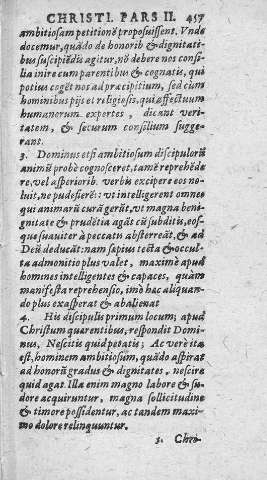 CHRISTI. PARS II. 457
ambitiosam petitionē proposuissent. Vnde
docemur, quādo de honorib & dignitati-
bus suscipiēdis agitur, nō debere nos consi-
lia inire cum parentibus & cognatis, qui
potius coget nos ad præcipitium, sed cùm
hominibus pijs et religiosis, qui affectuum
humanorum expertes, dicant veri-
tatem, & securum consilium sugge-
rant.
3. Dominus etsi ambitiosum discipulorū
animū probè cognosceret, tamē reprehēde-
re, vel asperiorib. verbis excipere eos no-
luit, ne pudefieret: vt intelligerent omnes
qui animarū curā gerūt, vt magna beni-
gnitate & prudētia agāt cū subditis, eos-
que suauiter à peccatis absterreāt, & ad
Deū deducāt: nam sæpius tecta & occul-
ta admonitio plus valet, maximè apud
homines intelligentes & capaces, quàm
manifesta reprehensio, imò hæc aliquan-
do plus exasperat & abalienat
4. His discipulis primum locum; apud
Christum quærentibus, respondit Domi-
nus, Nescitis quid petatis; Ac verè ita
est, hominem ambitiosum, quādo aspirat
ad honorū gradus & dignitates, nescire
quid agat. Illæ enim magno labore & su-
dore acquiruntur, magna sollicitudine
& timore possidentur, ac tandem maxi-
mo dolore relinquuntur.
3. Chri-